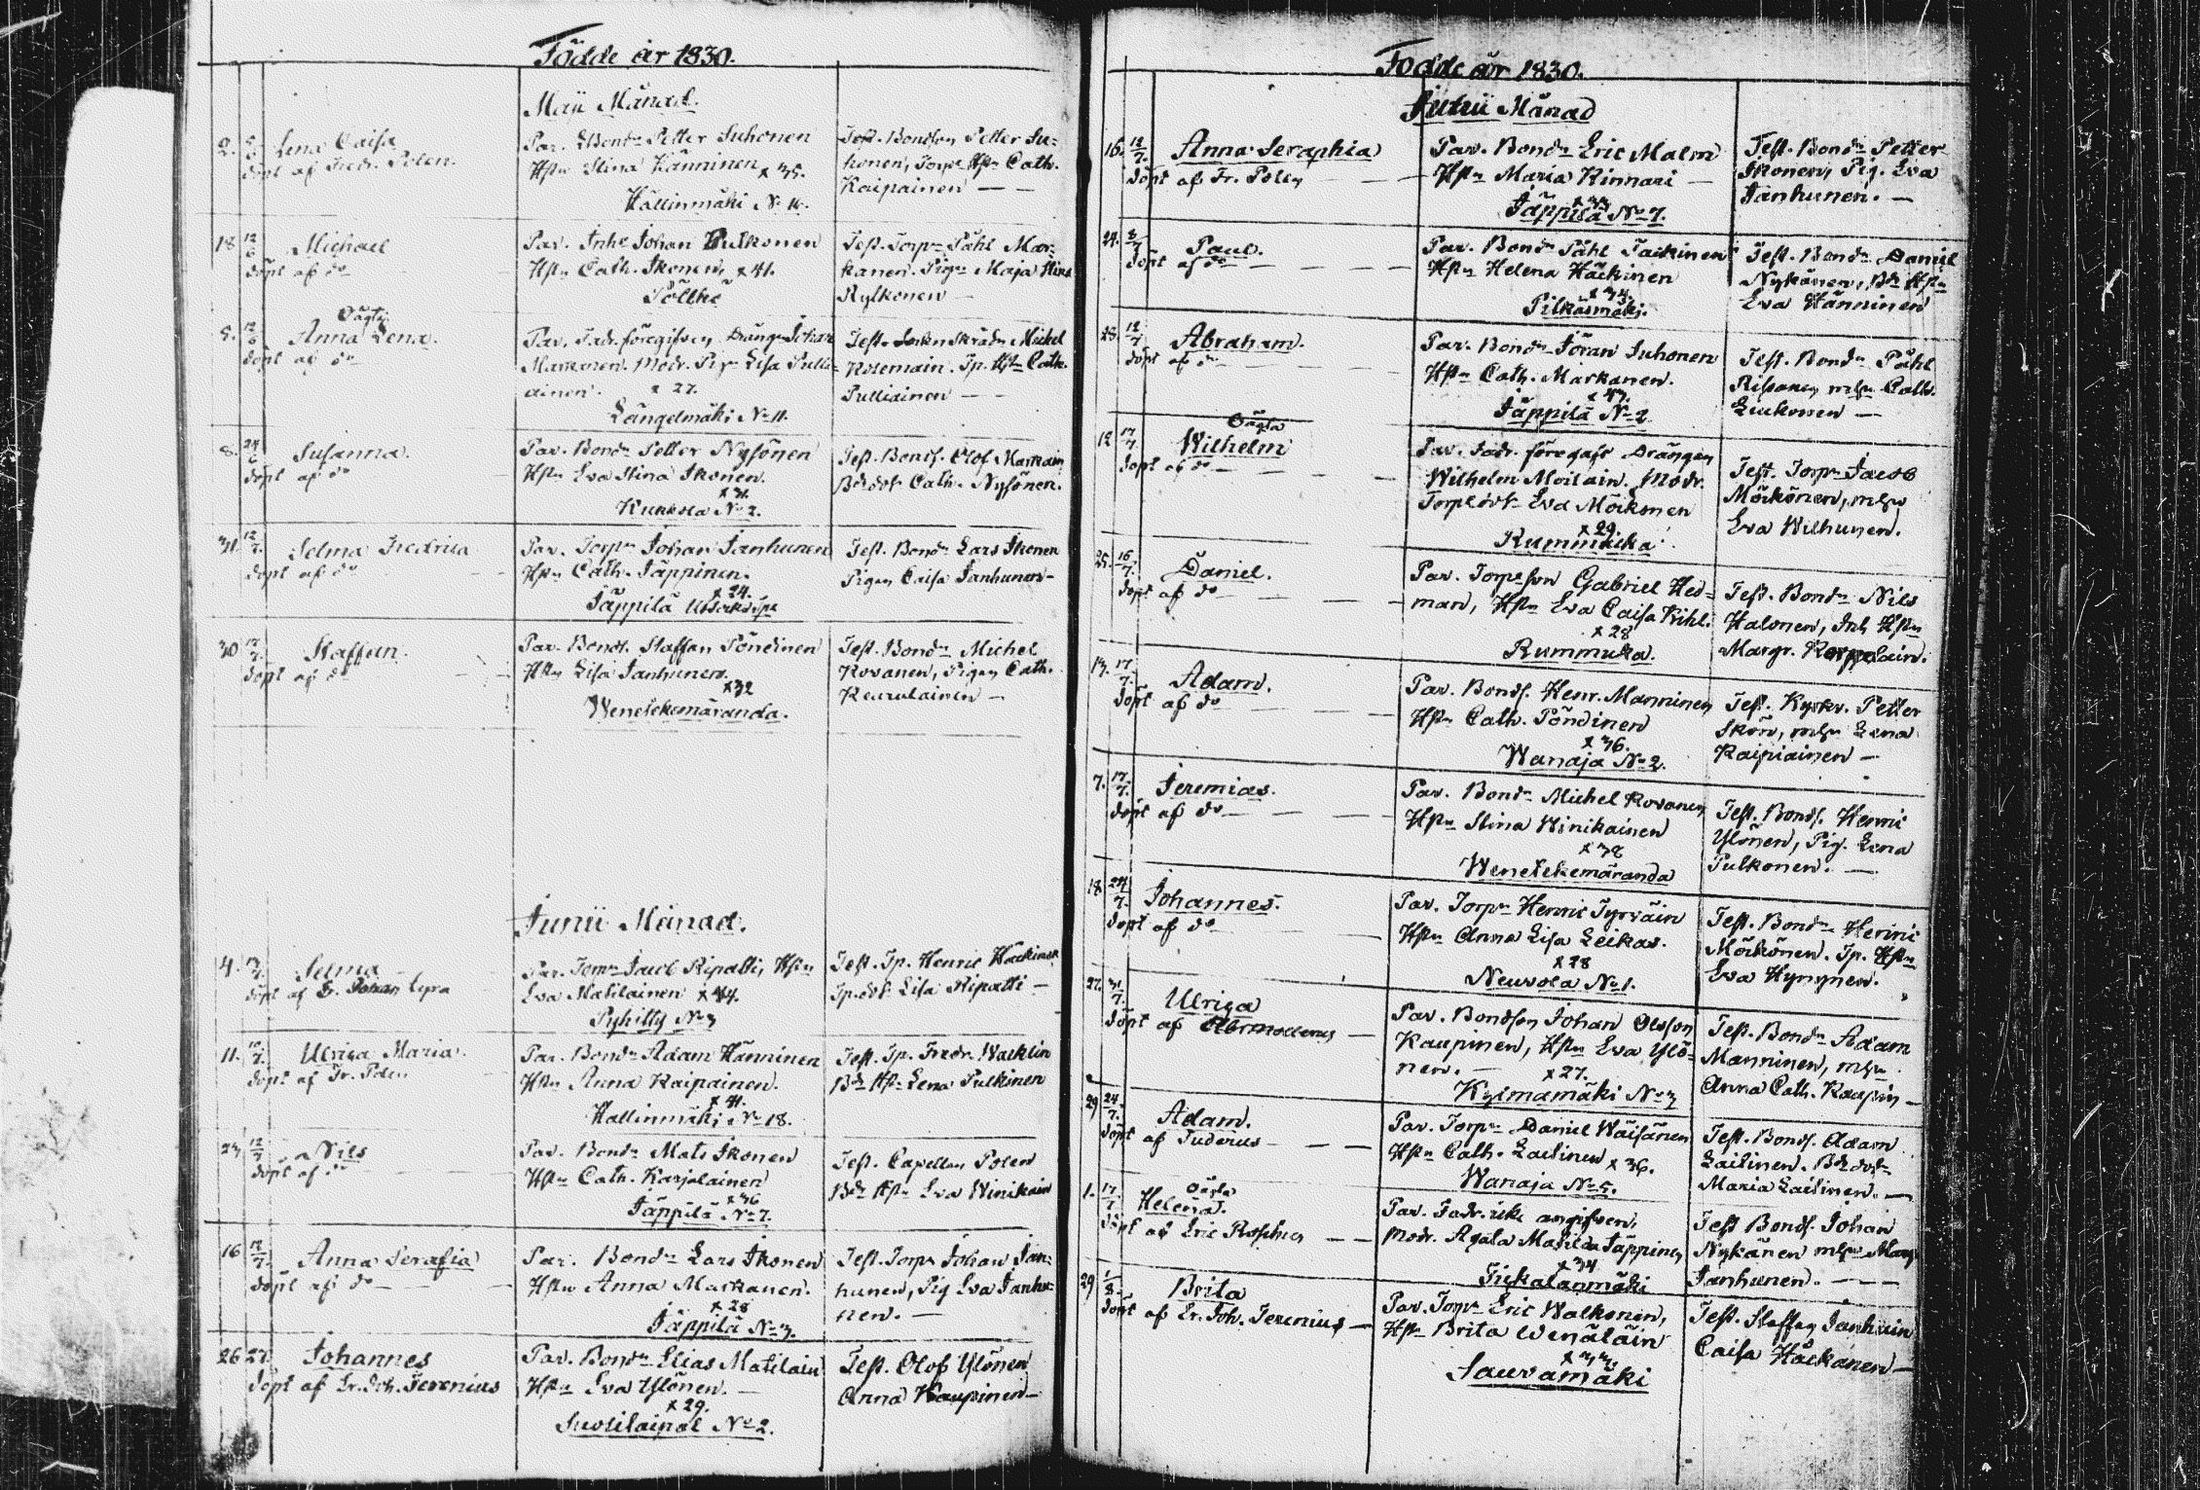 Födde år 1830.
Maii Månad.
2. Lena Caisa
döpt af Fredr. Polen.
Par. Bond. Petter Suhonen
Hust. Stina Hänninen x 35.
Hällinmäki No 16.
Test. Bondson Petter Su-
honen, Torp. Hstr Cath.
Kaipainen — —
18 12/6 Michael
döpt af do
Par. Inhs Johan Pulkonen
Hstn Cath. Ikonen, x 41.
Pölthö
Test. Torpr Påhl Mar-
kanen. Pign Maja Stina
Rylkonen —
5. 12/6 Oägta
Anna Lena.
döpt af do
Par. Fadr. föregifven Dräng. Johan
Markonen. Modr. Pign Lisa Pulli-
ainen. x 27.
Längelmäki No 11.
Test. Sockn Skrädr Michel
Rosemain. Tp. Hstr Cath.
Pulliainen — —
8. 24/6 Susanna.
döpt af do
Par. Bondn Petter Nysönen
Hstn Eva Stina Ikonen.
x 31.
Kukkola No 2.
Test. Bonds. Olof Markain
Bdedotr Cath. Nysönen.
31. 12/7 Selma Fredrica
döpt af do
Par. Torpr Johan Janhunen
Hstn Cath. Jäppinen.
x 24.
Jäppilä
Test. Bondn Lars Ikonen
Pigan Caisa Janhunen-
30 17/7 Staffan.
döpt af do
Par. Bonds. Staffan Pöndinen
Hstn Lisa Janhunen.
x 32
Wenetekemäranda.
Test. Bondn Michel
Rovanen, Pigan Cath.
Keurulainen —
Junii Månad.
4. Selma
döpt af Johan Cyra
Par. Torpr Jacob Ripatti, Hstn
Eva Matilainen x 44.
Pyhitty No 3
Test. Tp. Henric Häckinen
Tp.dotr Lisa Ripatti —
11. 10/7 Ulrica Maria.
döpt af Fr. Polen
Par. Bondn Adam Hänninen
Hstn Anna Kaipainen.
x 41.
Hällinmäki No 18.
Test. Tp. Fredr. Wacklin
Bd Hstr Lena Pulkinen
23, 12/7 Nils
döpt af do
Par. Bondn Mats Ikonen
Hstn Cath. Karjalainen
x 36
Jäppilä No 7.
Test. Capellan Polen
Bdn Hstr Eva Winikain
16 12/7 Anna Serafia
döpt af do —
Par. Bondn Lars Ikonen
Hstn Anna Markanen.
x 28
Jäppilä No 3.
Test. Torpr Johan Jan-
hunen, Pig Eva Janhu-
nen. —
26 27. Johannes
döpt af Sr. Joh. Ferenius
Par. Bondn Elias Matilain
Hstn Eva Ylönen. —
x 29.
Suotilainal No 2.
Test. Olof Ylönen
Anna Kaupinen —
Födde år 1830.
Junii Månad
16. 12/7 Anna Seraphia
döpt af Fr. Polen — —
Par. Bondn Eric Malm
Hstn Maria Kinnari —
x 33
Jäppilä No 7.
Test. Bondn Petter
Ikonen, Pig. Eva
Janhunen. —
24. 8/7 Paul.
döpt af do — — — —
Par. Bondn Påhl Taikinen
Hstn Helena Häckinen
x 34.
Pilkäsmäki.
Test. Bondn Daniel
Nykänen, Bdn Hstn
Eva Hänninen
25. 12/7 Abraham.
döpt af do
Par. Bondn Jöran Suhonen
Hstn Cath. Markanen.
x 43.
Jäppilä No 2
Test. Bondn Påhl
Rissanen mhu Cath.
Liukonen —
12 17/7 Oägta
Wilhelm
döpt af do —
Par. Fadr. föregafs Drängen
Wilhelm Moilain. Modr.
Torpedotr Eva Möikonen
x 29.
Rummukka
Test. Torpr Jacob
Möikönen, mhu
Eva Wilhunen.
25. 16/7. Daniel.
döpt af do — — — —
Par. Torpeson Gabriel Hed-
man, Hstn Eva Caisa Kihl.
x 28
Rummuka.
Test. Bondn Nils
Halonen, Inh Hstn
Margr. Korpelain.
13. 17/7. Adam.
döpt af do — — —
Par. Bonds. Henr. Manninen
Hstn Cath. Pöndinen
x 36.
Wanaja No 2.
Test. Kyrkv. Petter
Skön, mhu Lena
Kaipiainen —
7. 17/7. Jeremias.
döpt af do — — — —
Par. Bondn Michel Rovanen
Hstn Stina Winikainen
x 38
Wenetekemäranda
Test. Bonds. Henric
Ylönen, Pig. Lena
Pulkonen. —
18. 24/7. Johannes.
döpt af do
Par. Torpr Henric Tyrväin
Hstn Anna Lisa Leikas.
x 28
Neuvola No 1.
Test. Bondn Henric
Möikönen. Tp. Hstn
Eva Hynynen.
27. 31/7. Ulrica
döpt af —
Par. Bondson Johan Olsson
Kaupinen, Hstn Eva Ylö-
nen. — x 27.
Kylmämäki No 3
Test. Bondn Adam
Manninen, mhu
Anna Cath. Kaupin —
29 24/7. Adam.
döpt af Juderus — — —
Par. Torpr Daniel Wäisänen
Hstn Cath. Laitinen x 36.
Wanaja No 5.
Test. Bonds. Adam
Laitinen. Bdedotr
Maria Laitinen. —
1. 17/7 Oägta
Helena.
döpt af Eric Roschier — —
Par. Fadr. icke angifven,
Modr. Agata Matilda Jäppinen
x 34
Tiikalanmäki
Test Bonds. Johan
Nykänen mhu Marg
Janhunen. — — —
29 1/8. Brita
döpt af Sr. Joh. Ferenius —
Par. Torpr Eric Walkonen,
Hstn Brita Wenäläin
x 33.
Sauvamäki
Test. Staffan Janhuin
Caisa Häckänen —